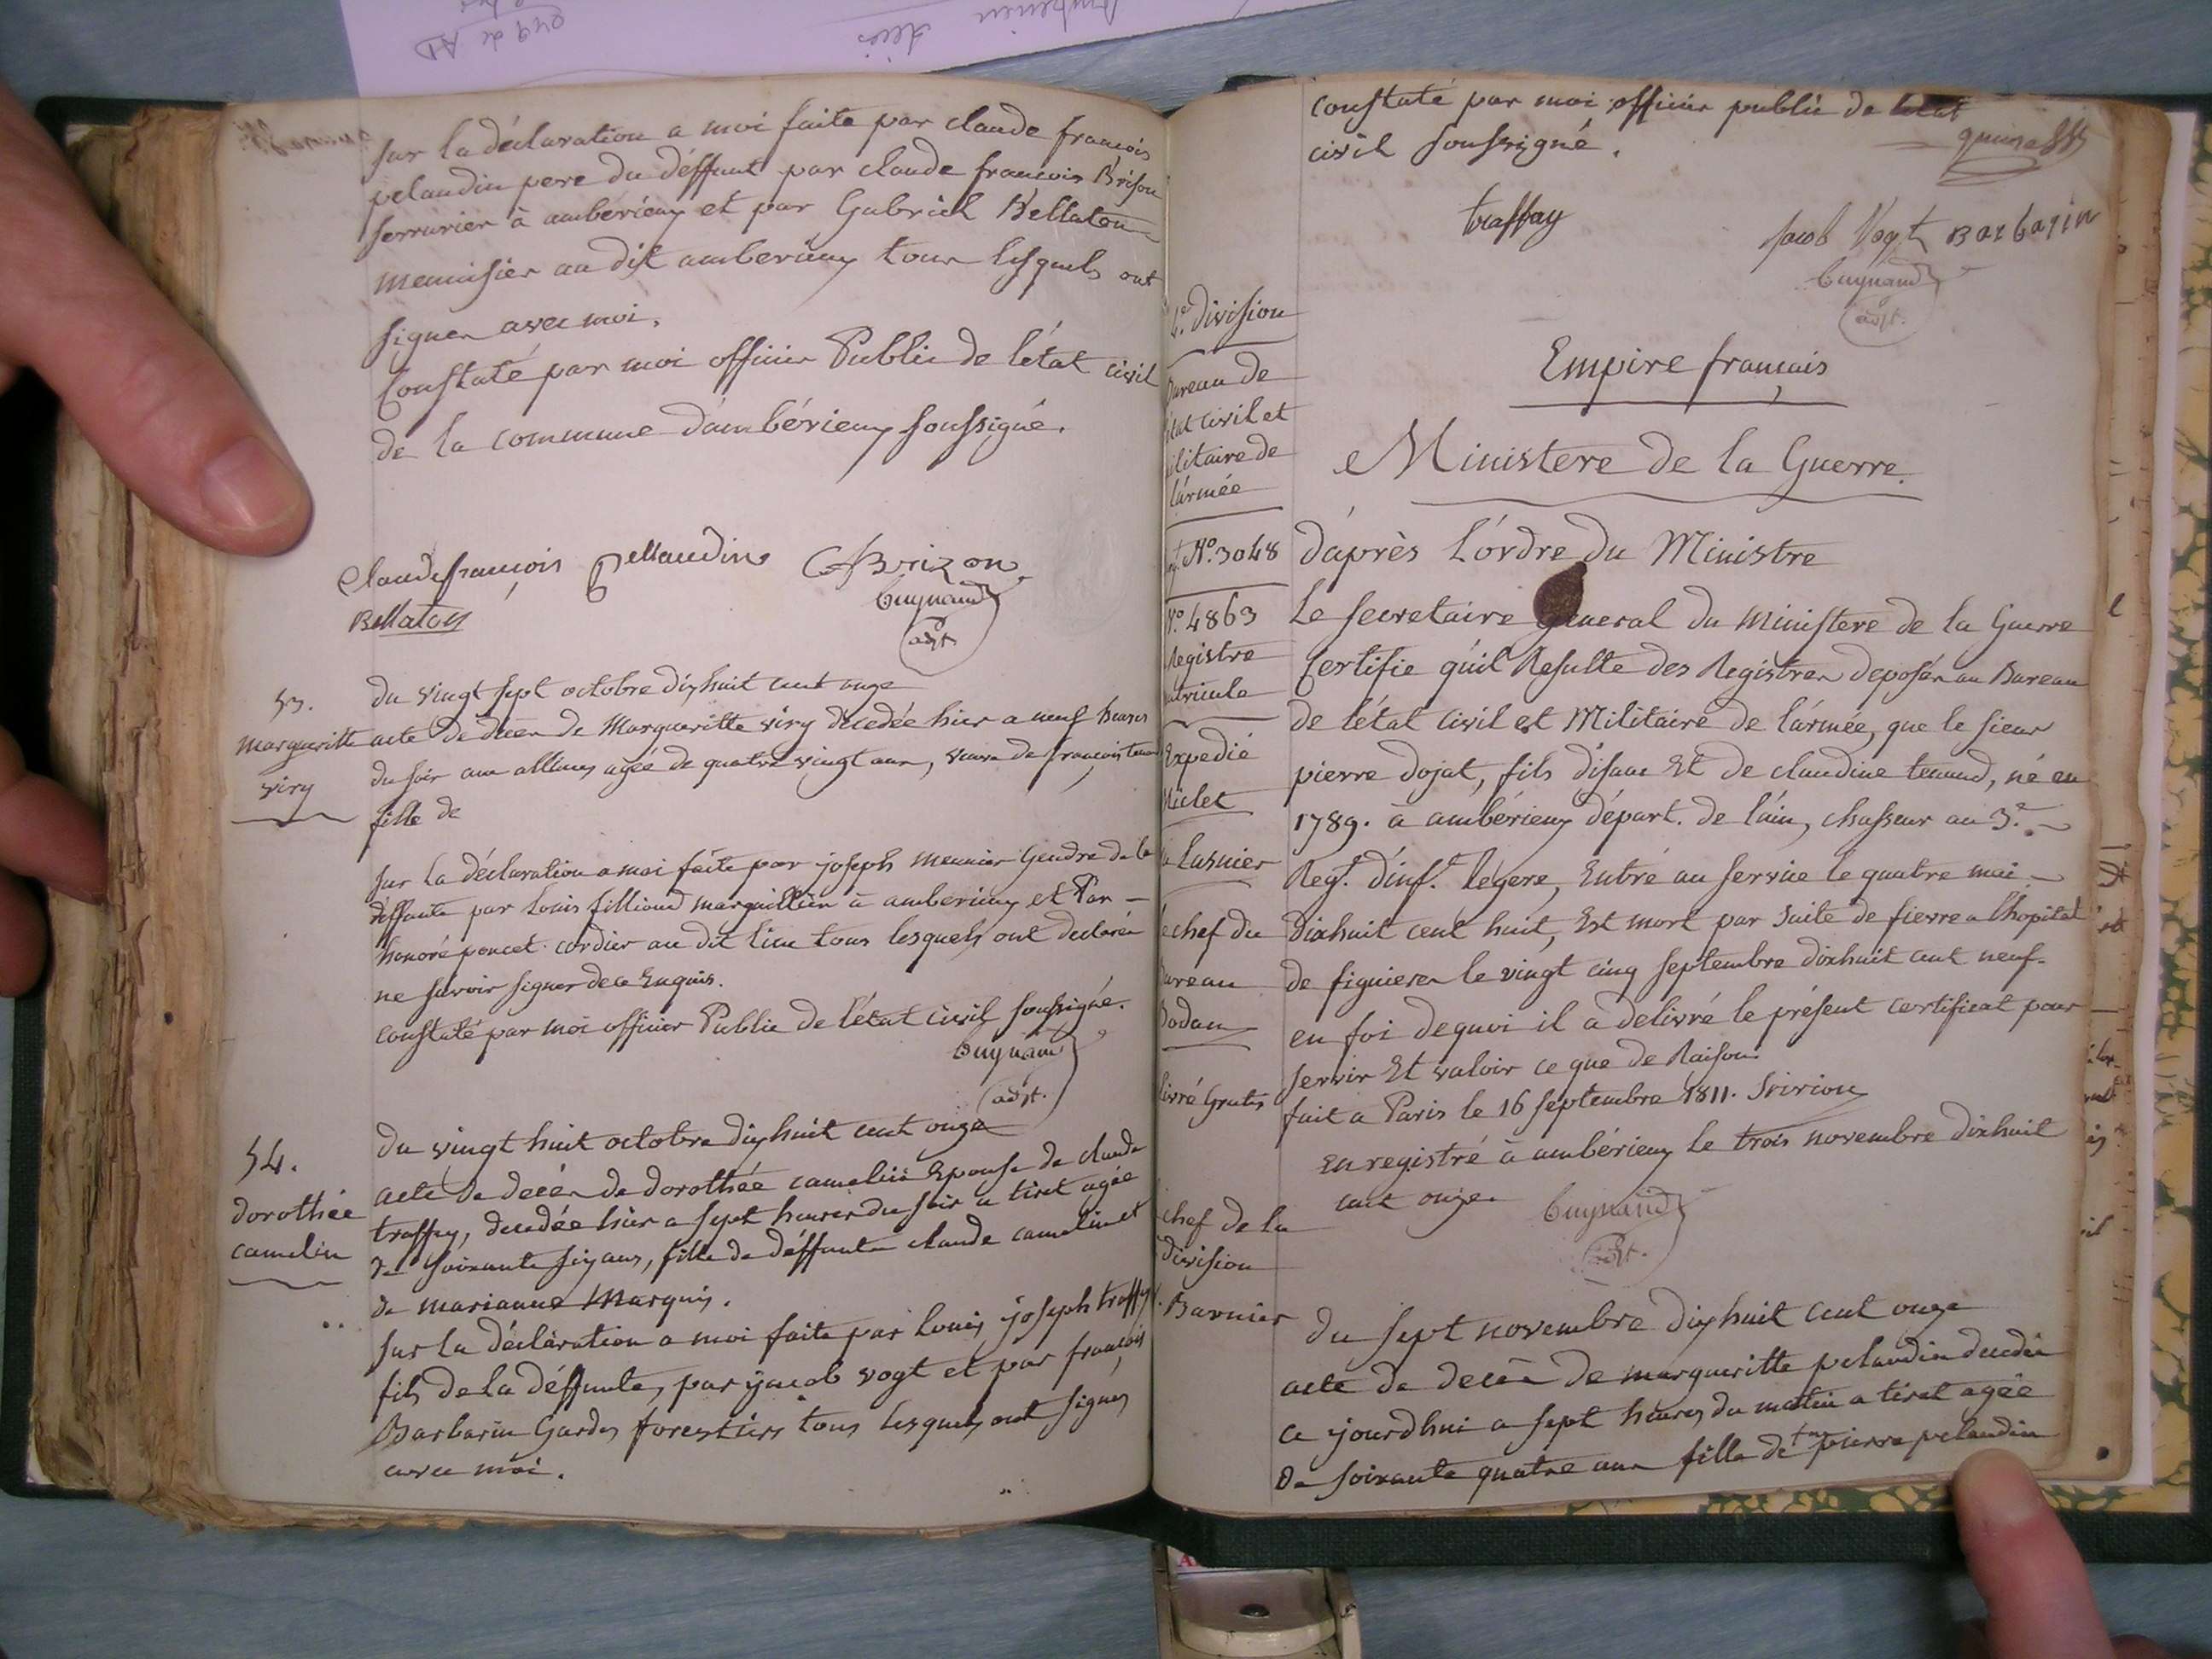 sur la déclaration a moi faite par claude francois
pelaudin pere du déffunt par claude francois Brison
serrurier à ambérieux et par Gabriel Bellaton
menuisier au dit amberieux tous lesquels ont
signer avec moi.
Constaté par moi officier Public de l'état civil
de la commune d'ambérieux soussigné.
Claude françois pellaudin CfBrizon
Bellaton
Cuynaud
adjt.
53.
margueritte
viry
du vingt sept octobre dixhuit cent onze
acte de décès de Margueritte viry décedée hier a neuf heures
du soir aux allimes agée de quatre vingt ans, veuve de françois tenand
fille de
sur la déclaration a moi faite par joseph meunier Gendre de la
déffunte par Louis fillioud marguillier à amberieux et Par
honoré poncet cordier au dit lieu tous lesquels ont déclarés
ne savoir signer de ce Enquis.
constaté par moi officier Public de l'état civil soussigné.
Cuynaud
adjt.
54.
dorothée
camelin
du vingt huit octobre dixhuit cent onze
acte de décès de dorothée camelin Epouse de claude
traffey, décedée hier a sept heures du soir a tiret agée
de soixante six ans, fille de déffunts claude camelin et
de marianne Marquis.
sur la déclaration a moi faite par Louis joseph traffey
fils de la déffunte, par jacob vogt et par françois
Barbarin Gardes forestiers tous lesquels ont signés
avec moi.
constaté par moi officier public de letat
civil soussigné.
traffay
jacob Vogt Barbarin
Cuynaud
adjt.
4e. division
Bureau de
état civil et
ilitaire de
l'armée
No. 3048
No. 4863
Registre
atricule
Expedié
Miclet
Lasnier
le chef du
Bureau
Bodan
livré Gratis
chef de la
division
Barnier
Empire français
Ministere de la Guerre.
d'après L'ordre du Ministre
Le secretaire General du ministere de la Guerre
Certifie qu'il Resulte des Registres deposés au Bureau
de l'état civil et Militaire de l'armée, que le sieur
pierre dojat, fils d'isaac Et de claudine tenand, né en
1789. à ambérieux départ. de l'ain, chasseur au 3e.
Regt. d'inft. légere, Entré au service le quatre mai
dixhuit cent huit, Est mort par suite de fievre a l'hopital
de figuieres le vingt cinq septembre dixhuit cent neuf.
en foi dequoi il a delivré le présent certificat pour
servir Et valoir ce que de Raison.
fait a Paris le 16 septembre 1811.
Enregistré à ambérieux le trois novembre dixhuit
cent onze.
Cuynaud
adjt.
Du sept novembre dixhuit cent onze
acte de décès de margueritte pelaudin décedée
ce jourdhui a sept heures du matin a tiret agée
de soixante quatre ans fille de pierre pelaudin